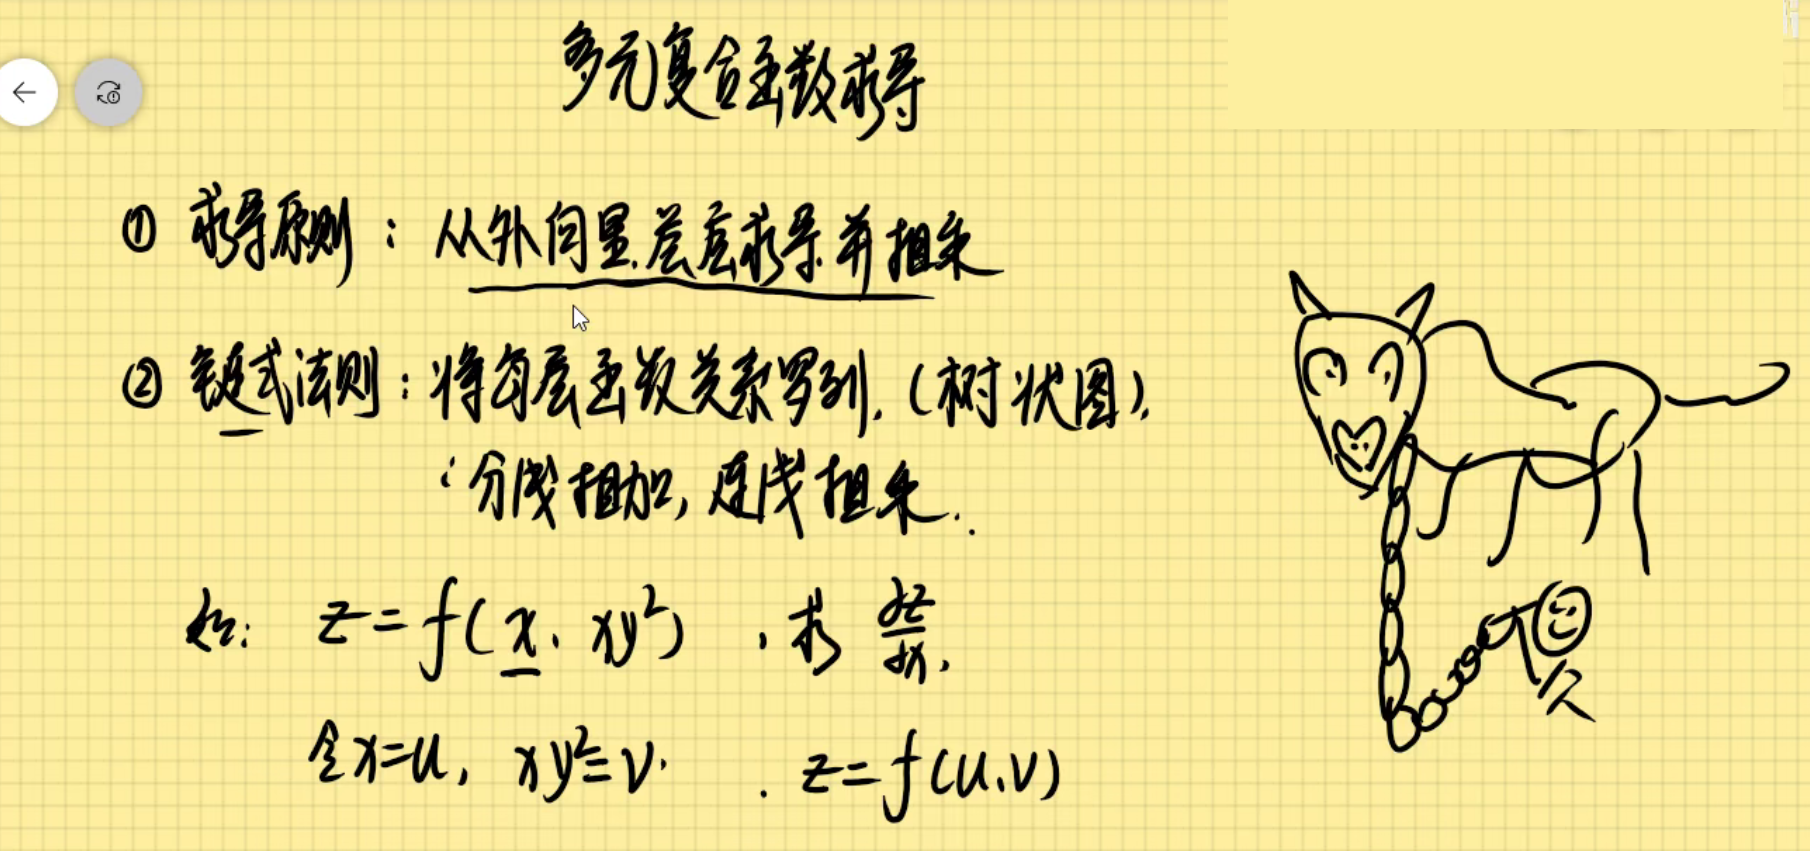 多元复合函数求导
① 求导原则：从外向里.层层求导.并相乘
② 链式法则：将每层函数关系罗列.(树状图).
分线相加,连线相乘.
如: z=f(x, xy²) , 求 ∂z/∂x.
令x=u, xy²=v. . z=f(u,v)